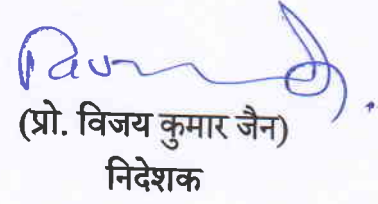 (प्रो. विजय कुमार जैन)
निदेशक